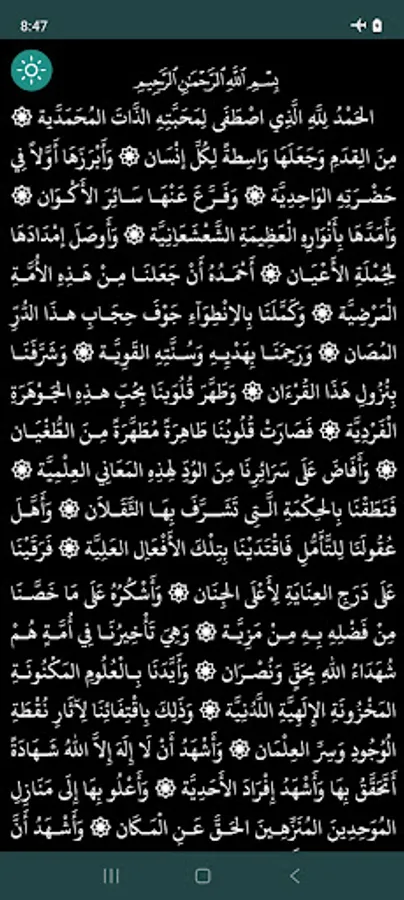 8:47
بِسْمِ اللَّهِ الرَّحْمَٰنِ الرَّحِيمِ
الحَمْدُ لِلَّهِ الَّذِي اصْطَفَى لِمَحَبَّتِهِ الذَّاتَ المُحَمَّدِيَّة ۞
مِنَ القِدَمِ وَجَعَلَهَا وَاسِطَةً لِكُلِّ إِنْسَان ۞ وَأَبْرَزَهَا أَوَّلاً فِي
حَضْرَتِهِ الوَاحِدِيَّة ۞ وَفَرَّعَ عَنْهَا سَائِرَ الأَكْوَان ۞
وَأَمَدَّهَا بِأَنْوَارِهِ العَظِيمَةِ الشَّعْشَعَانِيَّة ۞ وَأَوصَلَ إِمْدَادَهَا
لِجُمْلَةِ الأَعْيَان ۞ أَحْمَدُهُ أَنْ جَعَلَنَا مِنْ هَذِهِ الأُمَّةِ
المَرْضِيَّة ۞ وَكَمَّلَنَا بِالاِنْطِوَآءِ جَوْفَ حِجَابِ هذَا الدُّرِّ
المُصَان ۞ وَرَحِمَنَا بِهَدْيِهِ وَسُنَّتِهِ القَوِيَّة ۞ وَشَرَّفَنَا
بِنُزُولِ هَذَا القُرْءَان ۞ وَطَهَّرَ قُلُوبَنَا بِحُبِّ هذِهِ الجَوْهَرَةِ
الفَرْدِيَّة ۞ فَصَارَتْ قُلُوبُنَا طَاهِرَةً مُطَهَّرَةً مِنَ الطُّغْيَان
۞ وَأَفَاضَ عَلَى سَرَائِرِنَا مِنَ الوُدِّ لِهذِهِ المَعَانِي العِلْمِيَّة ۞
فَنَطَقْنَا بِالحِكْمَةِ الَّتِي تَشَرَّفَ بِهَا الثَّقَلاَن ۞ وَأَهَّلَ
عُقُولَنَا لِلتَّأَمُّلِ فَاقْتَدَيْنَا بِتِلْكَ الأَفْعَالِ العَلِيَّة ۞ فَرَقَيْنَا
عَلَى دَرَجِ العِنَايَةِ لِأَعْلَى الجِنَان ۞ وَأَشْكُرُهُ عَلَى مَا خَصَّنَا
مِنْ فَضْلِهِ بِهِ مِنْ مَزِيَّة ۞ وَهِيَ تَأْخِيرُنَا فِي أُمَّةٍ هُمْ
شُهَدَاءُ اللهِ بِحَقٍّ وَنُصْرَان ۞ وَأَيَّدَنَا بِالعُلُومِ المَكْنُونَةِ
المَخْزُونَةِ الإِلَهِيَّةِ اللَّدُنِيَّة ۞ وَذَلِكَ بِاقْتِفَائِنَا لِآثَارِ نُقْطَةِ
الوُجُودِ وَسِرِّ العِلْمَان ۞ وَأَشْهَدُ أَنْ لَا إِلَهَ إِلاَّ اللهُ شَهَادَةً
أَتَحَقَّقُ بِهَا وَأَشْهَدُ إِفْرَادَ الأَحَدِيَّة ۞ وَأَعْلُو بِهَا إِلَى مَنَازِلِ
المُوَحِدِينَ المُنَزِّهِينَ الحَقَّ عَنِ المَكَان ۞ وَأَشْهَدُ أَنَّ